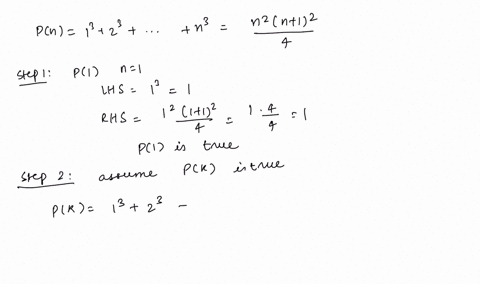 P(n) = 1³ + 2³ + ... + n³ = n²(n+1)²/4
Step 1: P(1) n=1
LHS = 1³ = 1
RHS = 1²(1+1)²/4 = 1·4/4 = 1
P(1) is true
Step 2: assume P(k) is true
P(k) = 1³ + 2³ -